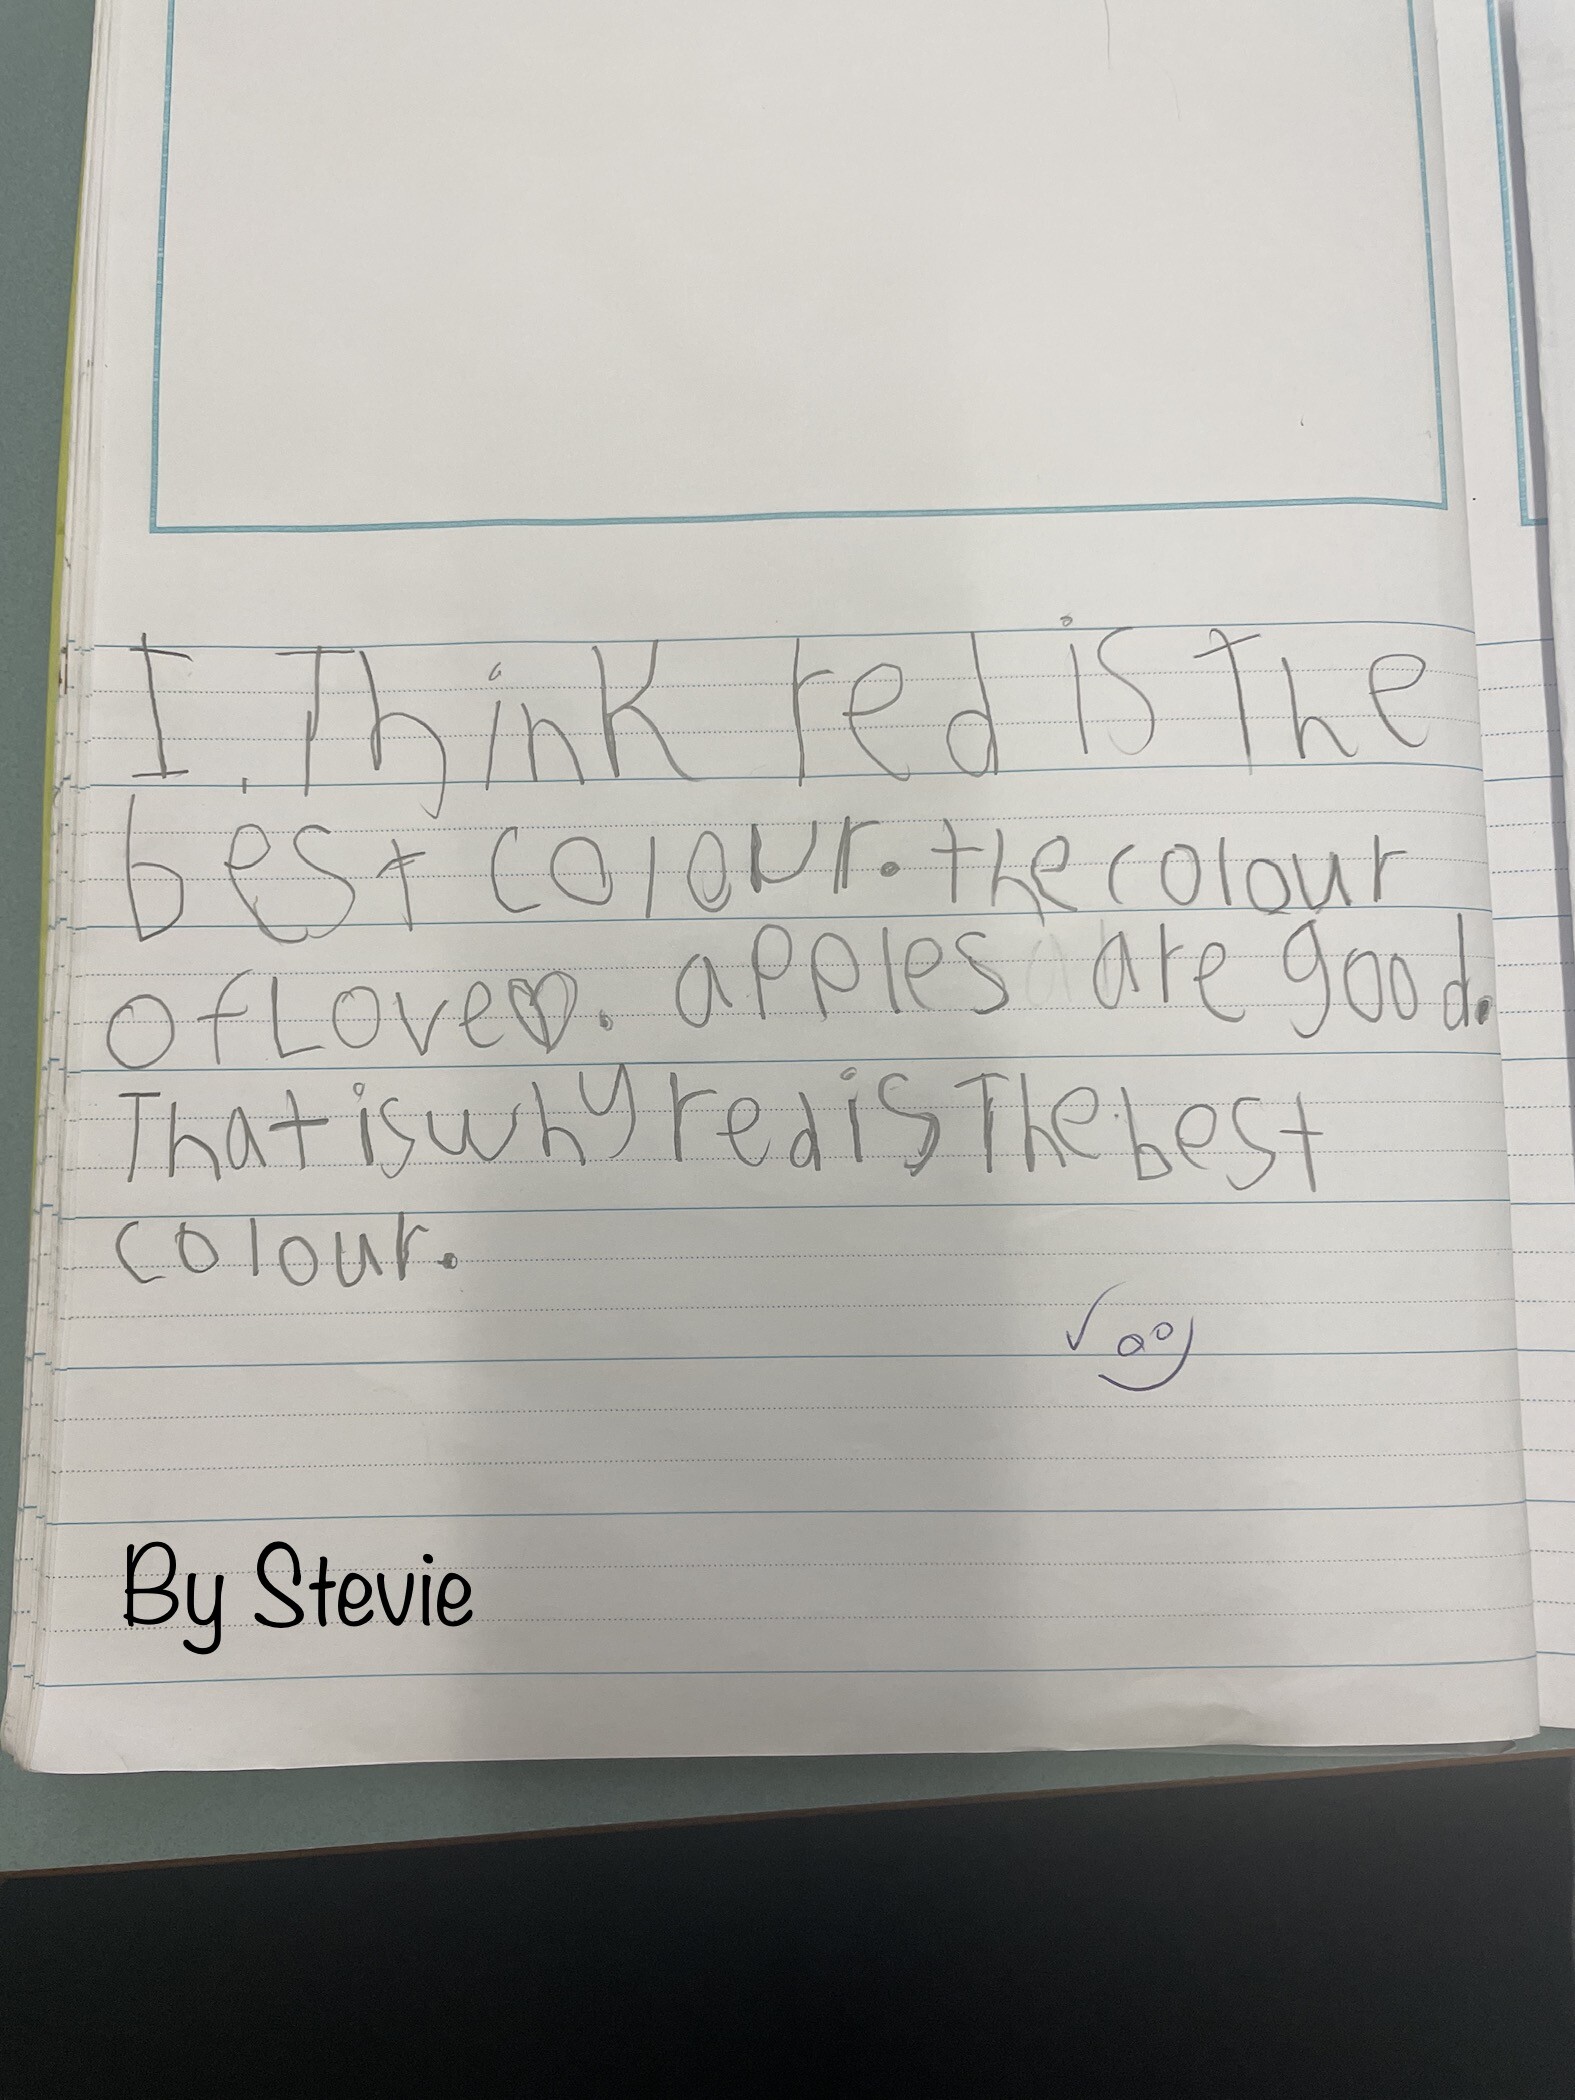 I Think red is The
best colour. the colour
of Love♡. apples are good.
That is why red is The best
colour.
By Stevie